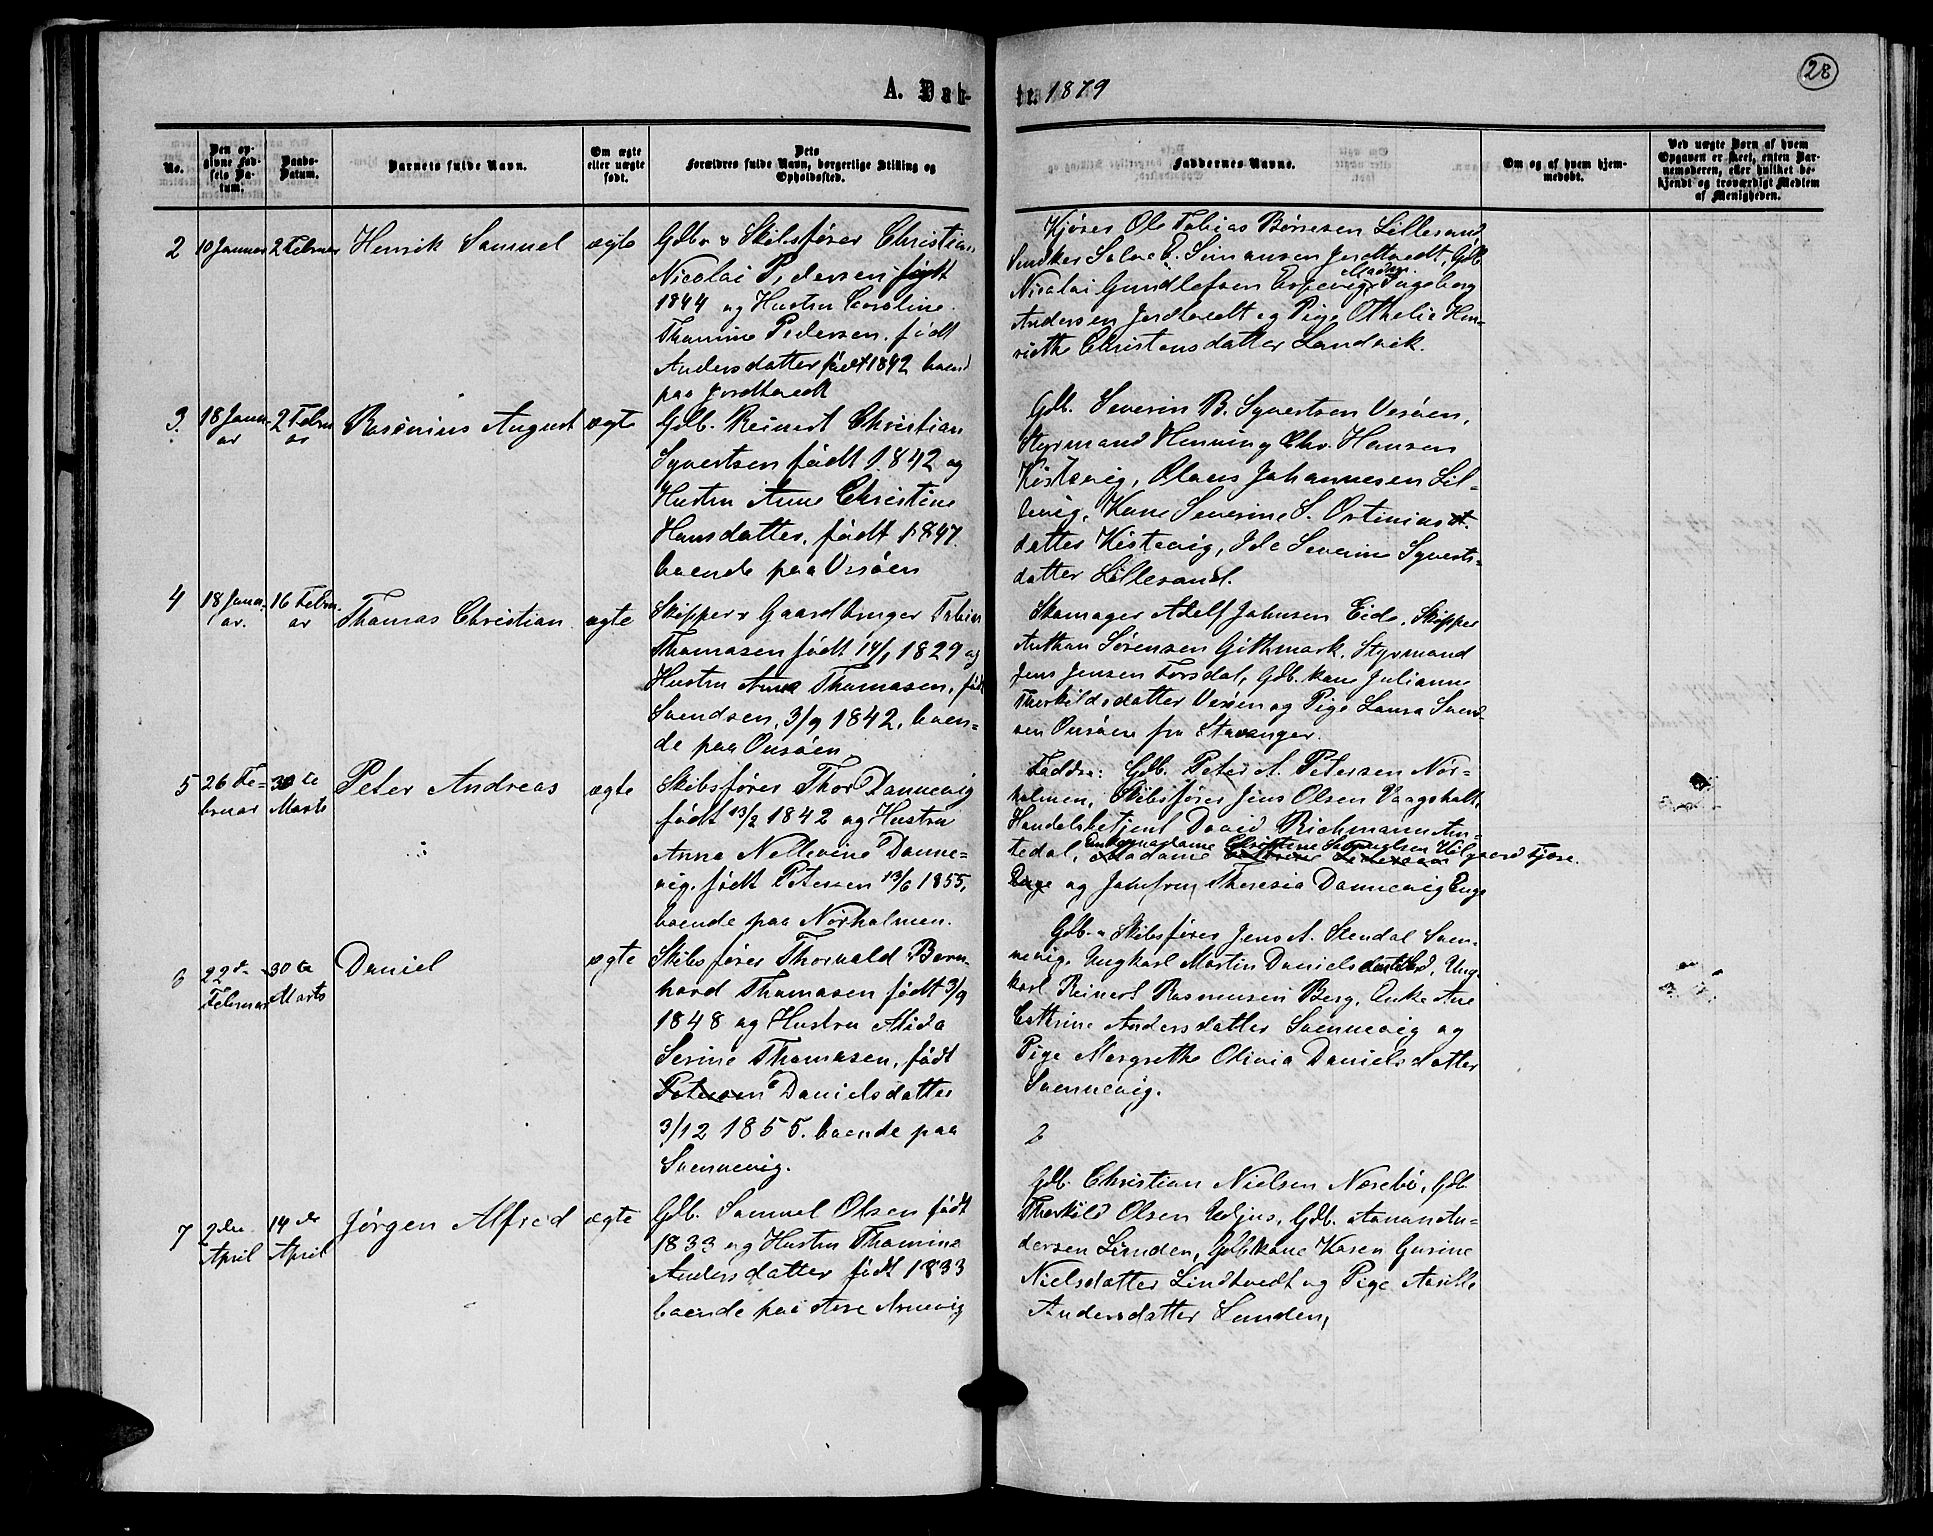 28
A. Dåb- te. 1879
No.
Den opgivne Fødsels Datum.
Daabs-Datum.
Barnets fulde Navn.
Om ægte eller uægte født.
Dets Forældres fulde Navn, borgerlige Stilling og Opholdssted.
Faddernes Navne.
Om og af hvem hjemmedøbt.
Ved uægte Børn af hvem Opgaven er skeet, enten Barnemoderen, eller hvilket bekjendt og troværdigt Medlem af Menigheden.
2
10 Januar
2 Februar
Henrik Samuel
ægte
Gdbr & Skibsfører Christian
Nicolai Pedersen født
1844 og Hustru Caroline
Thomine Pedersen, født
Andersdatter født 1842 boend
paa Jordtvedt
Kjører Ole Tobias Børresen Lillesand
Snedker Salve E. Simonsen Jordtvedt, Gdb.
Nicolai Gundlefsen Espevig, Madam Ingeborg
Andersen Jordtvedt og Pige Othelie Hen-
riette Christensdatter Landvik.
3.
18 Janu-
ar
2 Febru
ar
Rosenius August
ægte
Gdb. Reinert Christian
Syvertsen født 1842 og
Hustru Anne Christine
Hansdatter, født 1847.
boende paa Vesøen
Gdb. Severin B. Syvertsen Vesøen,
Styrmand Henning Chr. Hansen
Kistevig, Olaus Johannesen Lil-
levig, Kone Severine S. Ortinius
datter Kistevig, Ide Severine Syverts-
datter Lillesand.
4
18 Janu-
ar.
16 Febru-
ar
Thomas Christian
ægte
Skipper & Gaardbruger Tobias
Thomasen født 14/1 1829 og
Hustru Anna Thomasen, født
Svendsen, 3/9 1842, boen-
de paa Ousøen
Skomager Adolf Johnsen Eide, Skipper
Anthon Sørensen Githmark, Styrmand
Jens Jensen Torsdal, Gdb. kone Julianne
Therkildsdatter Vesøen og Pige Laura Svend-
sen Ousøen fra Stavanger.
5
26 Fe-
bruar
30 te
Marts
Peter Andreas
ægte
Skibsfører Thor Dannevig
født 13/2 1842 og Hustru
Anna Nellevine Danne-
vig, født Petersen 13/6 1855,
boende paa Nørholmen.
Faddre: Gdb. Peter A. Petersen Nør-
holmen, Skibsfører Jens Olsen Vaagsholt
Handelsbetjent David Richmann Arn-
tedal, Enkemadame Christine Salvesen Helgaard Fjære.
Madame
og Jomfru Theresia Dannevig Enge
6
22 de
Februar
30 te
Marts
Daniel
ægte
Skibsfører Thorvald Bern-
hard Thomasen født 3/9
1848 og Hustru Alida
Serine Thomasen, født
Petersen Danielsdatter
3/12 1855. boende paa
Svennevig.
Gdb. & Skibsfører Jens A. Stendal Sven-
nevig, Ungkarl Martin Daniels , Ung-
karl Reinert Rasmusen Berg, Enke Ane
Cathrine Andersdatter Svennevig og
Pige Margrethe Olivia Danielsdatter
Svennevig.
2
7
2 den
April
14 de
April
Jørgen Alfred
ægte
Gdb. Samuel Olsen født
1833 og Hustru Thomine
Andersdatter født 1833
boende paa Arnevig
Gdb. Christian Nielsen Næsebø, Gdb.
Therkild Olsen Udjus, Gdb. Aanon An-
dersen Lunden, Gdb. kone Karen Gurine
Nielsdatter Lindtvedt og Pige Aasille
Andersdatter Lunden,